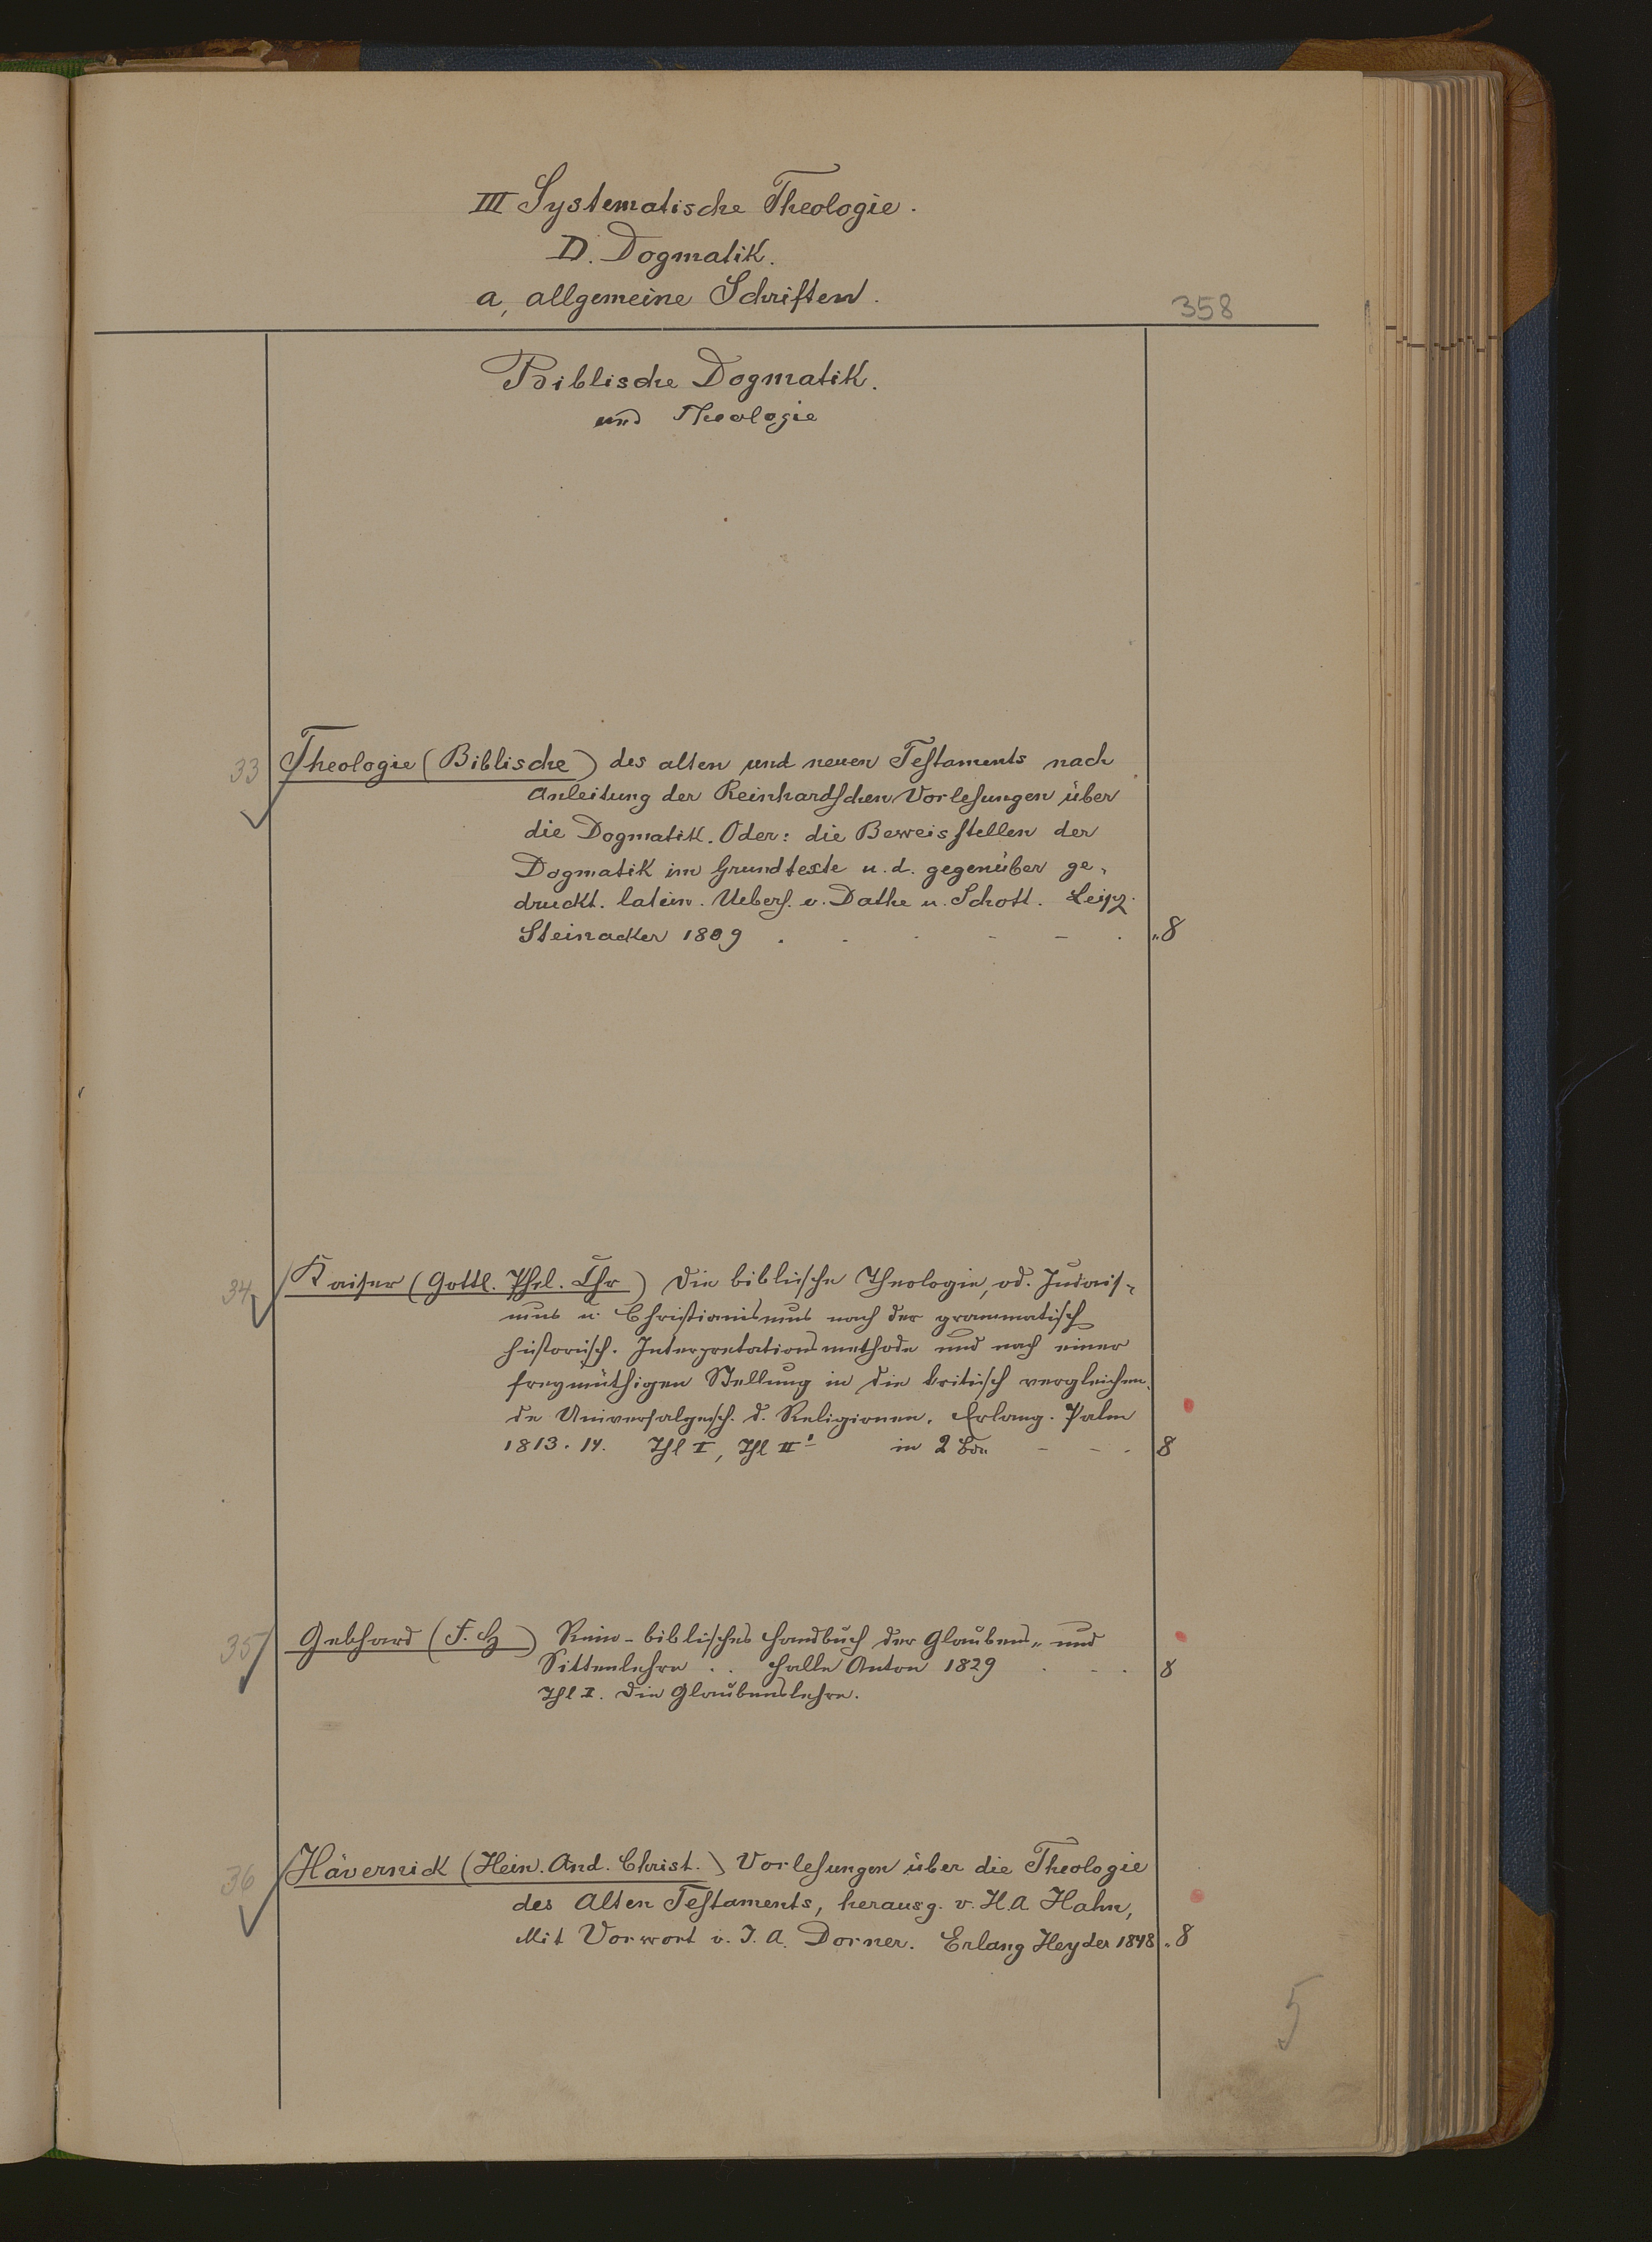 III Systematische Theologie.
D. Dogmatik.
a, allgemeine Schriften.
358
Biblische Dogmatik.
und Theologie
33 Theologie (Biblische) des alten und neuen Testaments nach
Anleitung der Reinhardschen Vorlesungen über
die Dogmatik. Oder: die Beweisstellen der
Dogmatik im Grundtexte u. d. gegenüber ge-
druckt. latein. Uebers. v. Dathe u. Schott. Leipz.
Steinacker 1809 . . . - - . „8
34 Kaiser (Gottl. Phil. Chr) Die biblische Theologie, od. Judais-
mus u. Christianismus nach der grammatisch
historisch. Interpretationsmethode und nach einer
freymüthigen Stellung in die kritisch vergleichen-
de Universalgesch. d. Religionen. Erlang. Palm
1813. 14. Thl I, Thl II¹ in 2 Bdn - - . 8
35 Gebhard (F. H) Rein-biblisches Handbuch der Glaubens- und
Sittenlehre . . Halle Anton 1829 . - . 8
Thl I. Die Glaubenslehre.
36 Hävernick (Hein. And. Christ.) Vorlesungen über die Theologie
des Alten Testaments, herausg. v. H.A Hahn,
Mit Vorwort v. J. A. Dorner. Erlang Heyder 1848 „8
5